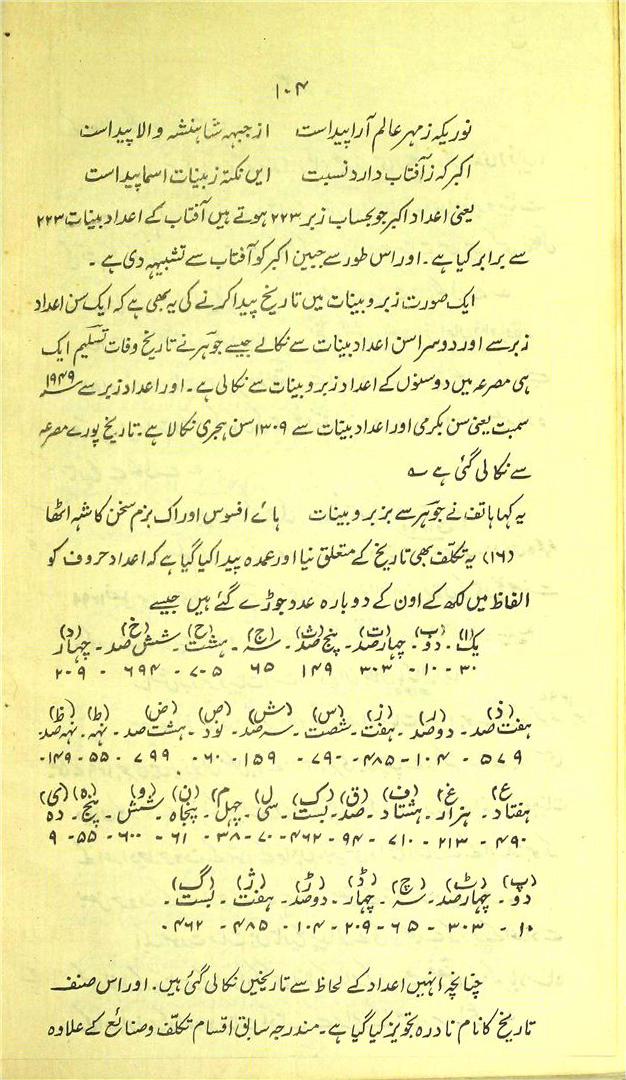 ۱۰۴
نوریکه ز مهر عالم آرا پیداست     از جبهه شاہنشه والا پیداست
اکبر که ز آفتاب دارد نسبت     ایں نکته ز بینات اسما پیداست
یعنی اعداد اکبر جو بحساب زبر ۲۲۳ ہوتے ہیں آفتاب کے اعداد بینات ۲۲۳
سے برابر کیا ہے ۔ اور اس طور سے جبین اکبر کو آفتاب سے تشبیہہ دی ہے ۔
ایک صورت زبر و بینات میں تاریخ پیدا کرنے کی یہ بھی ہے کہ ایک سن اعداد
زبر سے اور دوسرا سن اعداد بینات سے نکالے جیسے جوہر نے تاریخ وفات تسلیم ایک
ہی مصرعہ میں دو سنوں کے اعداد زبر و بینات سے نکالی ہے ۔ اور اعداد زبر سے ۱۹۴۹
سمبت یعنی سن بکرمی اور اعداد بینات سے ۱۳۰۹ سن ہجری نکالا ہے ۔ تاریخ پورے مصرعہ
سے نکالی گئی ہے ؎
یہ کہا ہاتف نے جوہر سے بزبر و بینات     ہائے افسوس اوراک بزم سخن کا شہ اٹھا
(۱۶) یہ تکلف بھی تاریخ کے متعلق نیا اور عمدہ پیدا کیا گیا ہے کہ اعداد حروف کو
الفاظ میں لکھ کے اون کے دوبارہ عدد جوڑے گئے ہیں جیسے
(ا) (ب) (ت) (ث) (ج) (ح) (خ) (د)
یک ۔ دو ۔ چہارصد ۔ پنج صد ۔ سہ ۔ ہشت ۔ شش صد ۔ چہار
۳۰ ۔ ۱۰ ۔ ۳۰۳ ۱۴۹ ۶۵ ۷۰۵ ۔ ۶۹۴ ۔ ۲۰۹
(ذ) (ر) (ز) (س) (ش) (ص) (ض) (ط) (ظ)
ہفت صد ۔ دوصد ۔ ہفت ۔ شصت ۔ سہ صد ۔ نود ۔ ہشت صد ۔ نہہ ۔ نہہ صد
۵۷۹ ۔ ۱۰۴ ۔ ۴۸۵ ۔ ۷۹۰ ۔ ۱۵۹ ۔ ۶۰ ۔ ۷۹۹ ۔ ۵۵ ۔ ۱۴۹
ع (غ) (ف) (ق) (ک) (ل) (م) (ن) (و) (ہ) (ی)
ہفتاد ۔ ہزار ۔ ہشتاد ۔ صد ۔ بست ۔ سی ۔ چہل ۔ پنجاہ ۔ شش ۔ پنج ۔ دہ
۴۹۰ ۔ ۲۱۳ ۔ ۷۱۰ ۔ ۹۴ ۔ ۴۶۲ ۔ ۷۰ ۔ ۳۸ ۔ ۶۱ ۔ ۶۰۰ ۔ ۵۵ ۔ ۹
(پ) (ٹ) (چ) (ڈ) (ڑ) (ژ) (گ)
دو ۔ چہارصد ۔ سہ ۔ چہار ۔ دوصد ۔ ہفت ۔ بست ۔
۱۰ ۔ ۳۰۳ ۔ ۶۵ ۔ ۲۰۹ ۔ ۱۰۴ ۔ ۴۸۵ ۔ ۴۶۲ ۔
چنانچہ انہیں اعداد کے لحاظ سے تاریخیں نکالی گئی ہیں ۔ اور اس صنف
تاریخ کا نام نادرہ تجویز کیا گیا ہے ۔ مندرجہ سابق اقسام تکلف و صنائع کے علاوہ